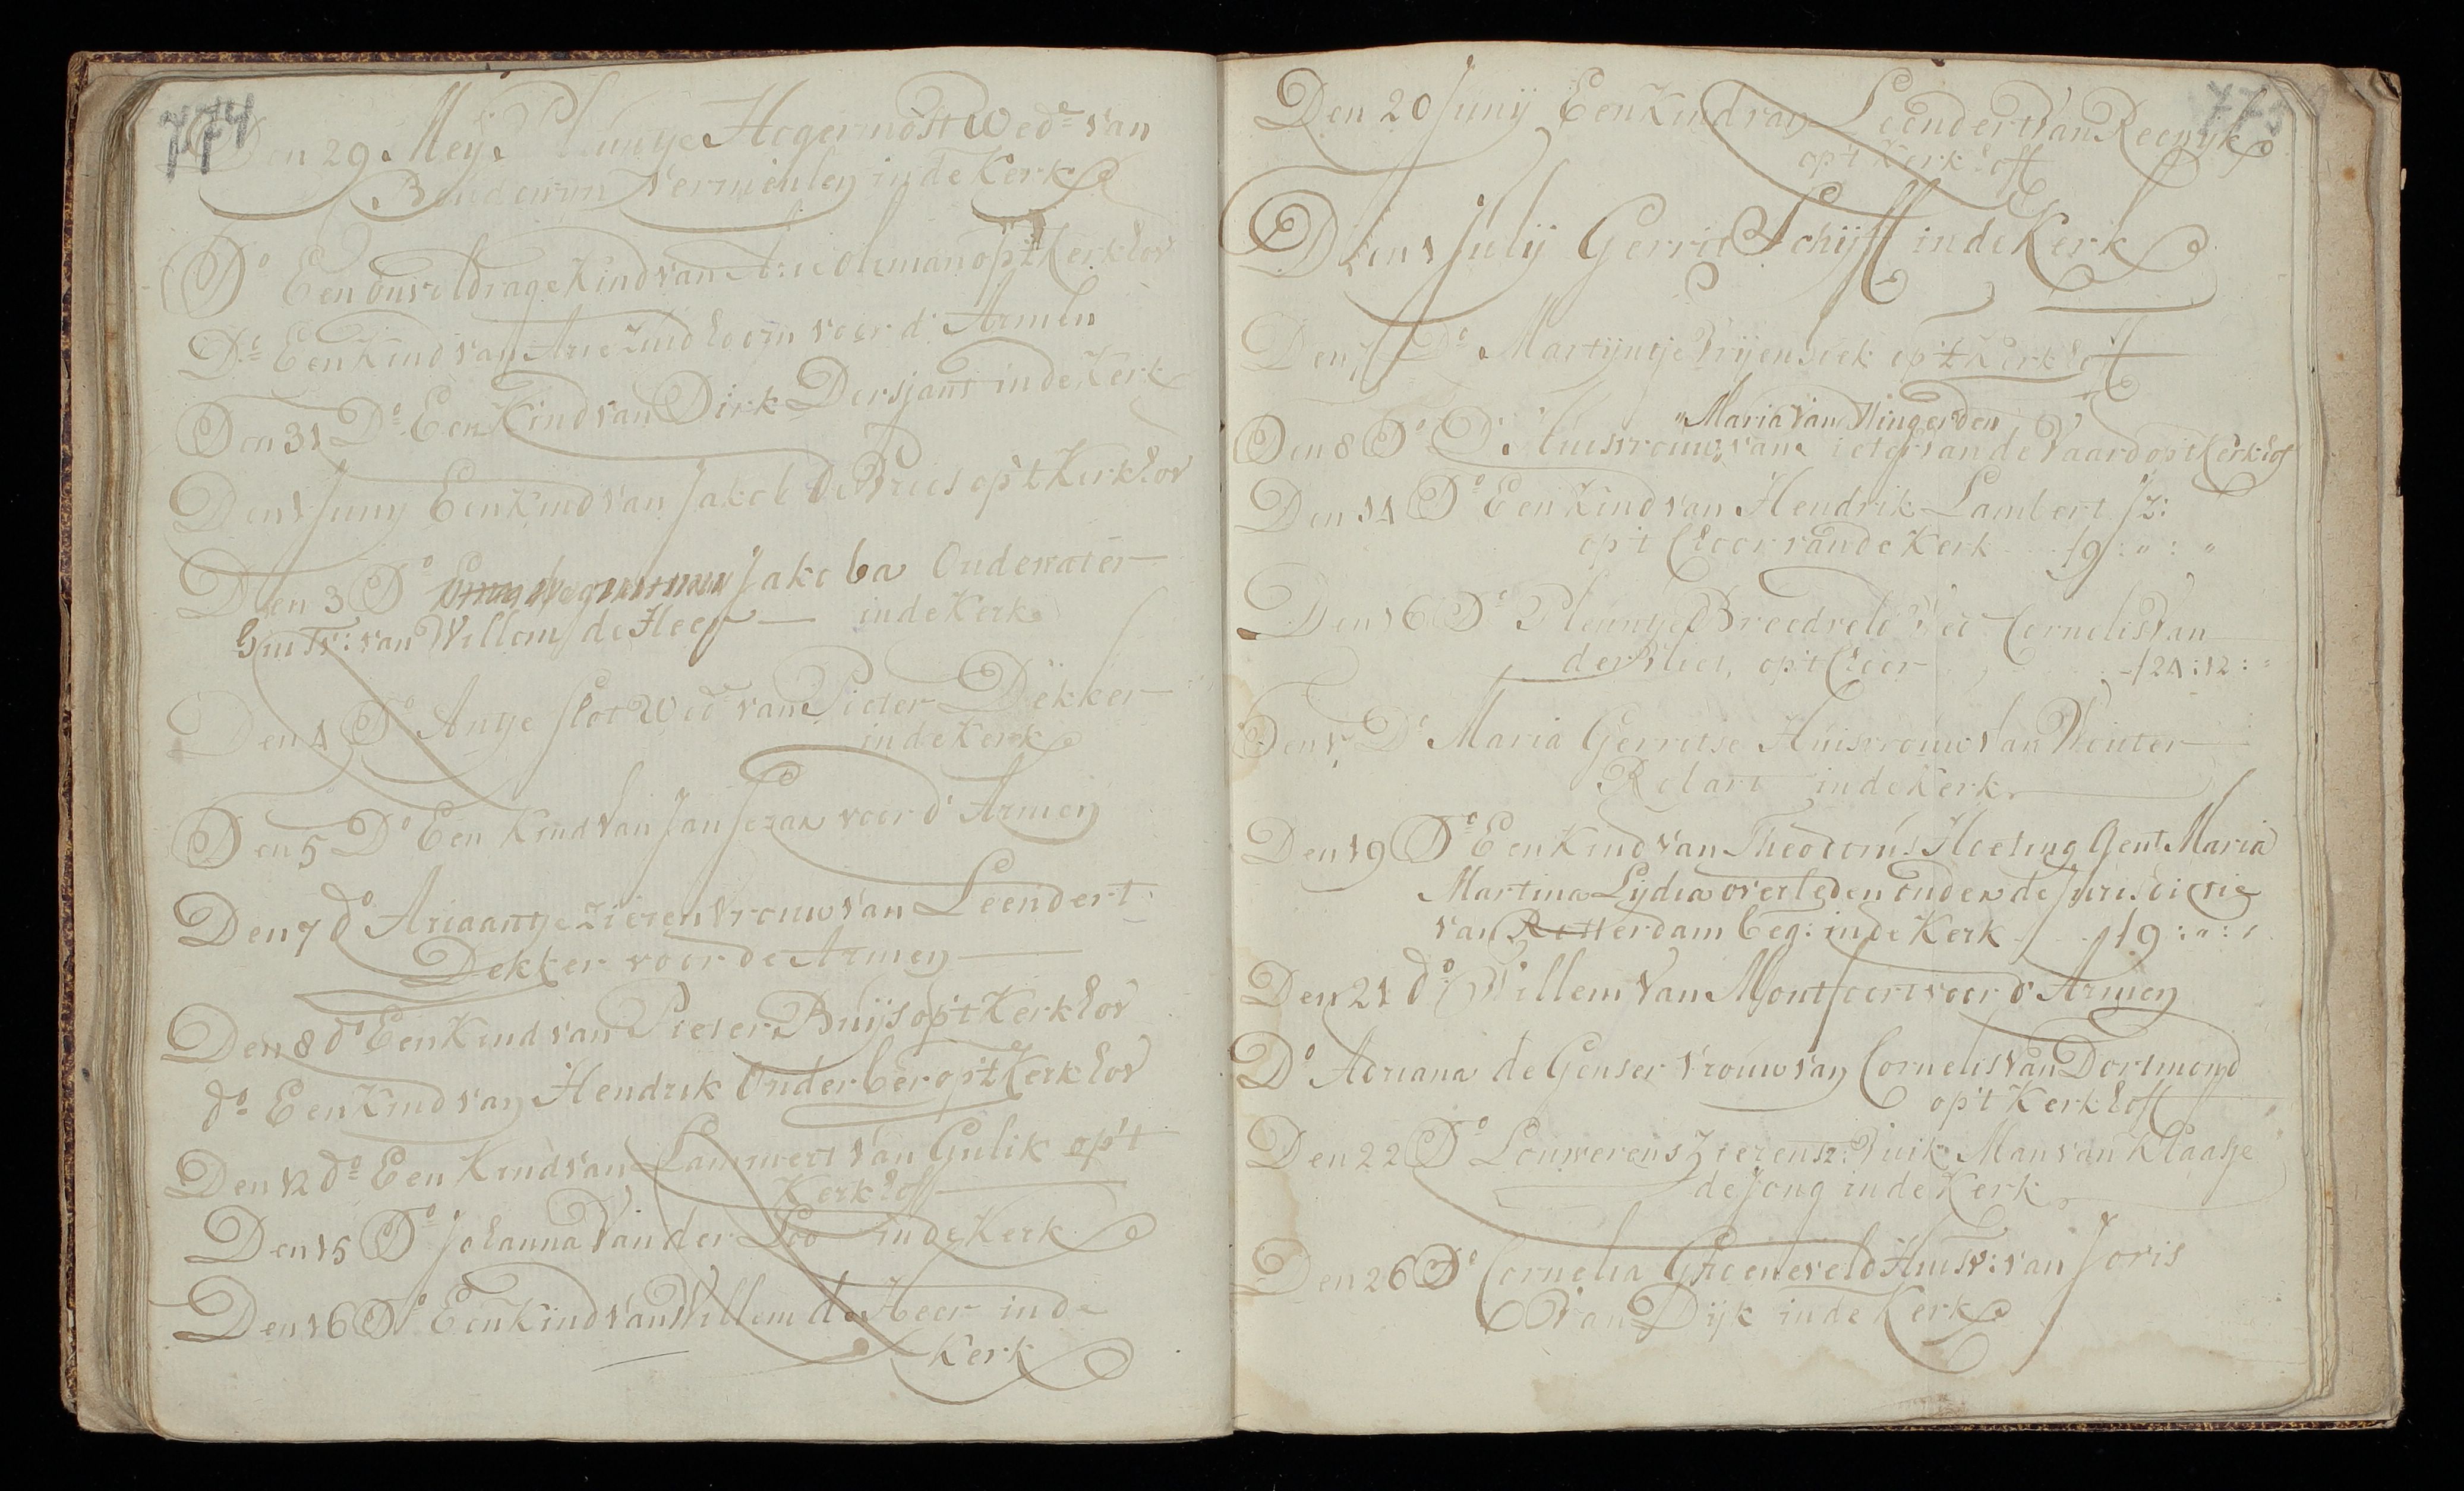 774
Den 29 Meij Hogermost Wed.e van
Boudewijn Vermeulen in de Kerk
D.o Een onvoldrage Kind van Arie Oleman op't Kerkhov
D.o Een Kind van Arie Zuidhoorn voor d' Armen
Den 31 D.o Een Kind van Dirk Dersjant in de Kerk
Den 1 Junij Een Kind van Jakob de Vries op 't Kerkhov
Den 3 D.o Jakoba Oudewater
Huisv: van Willem de Heer — in de Kerk
Den 4 D.o Antje Slot Wed.e van Pieter Dekker
in de Kerk
Den 5 D.o Een Kind van Jan voor d' Armen
Den 7 d.o Ariaantje Zieren vrouw van Leendert
Dekker voor de Armen
Den 8 d.o Een Kind van Pieter Buijs op't Kerkhov
d.o Een Kind van Hendrik op't Kerkhov
Den 12 d.o Een Kind van Lammert van Gulik op't
Kerkhoff
Den 15 D.o Johanna Van der Loo in de Kerk
Den 16 D.o Een Kind van Willem de Heer in de
Kerk
775
Den 20 Junij Een Kind van Leendert van Reewijk
op't Kerkhoff
Den 1 Julij Gerrit Schijff in de Kerk
Den 7 D.o Martijntje op't Kerkhoff
"Maria van Wingerden
Den 8 D.o D' Huisvrouw, van Pieter van de Vaard op't Kerkhof
Den 14 D.o Een Kind van Hendrik Lambert Jz:
op't Choor van de Kerk - - - f 9 : " : "
Den 16 D.o Pleuntje Breedveld Wed Cornelis van
der Vliet, op't Choor - f 24 : 12 : "
Den D.o Maria Gerritse Huisvrouw van Wouter
in de Kerk
Den 19 D.o Een Kind van Theodorus Hoeting Gen.t Maria
Martina Lydia overleden onder de Jurisdictie
van Rotterdam beg: in de Kerk - - f 19 : " : "
Den 21 d.o Willem van Montfoort voor d' Armen
D.o Adriana de Genser vrouw van Cornelis van Dortmond
op't Kerkhoff
Den 22 D.o Louwerens Zierensz: Man van Klaasje
de Jong in de Kerk
Den 26 D.o Cornelia Groeneveld Huisv: van Joris
Van Dijk in de Kerk